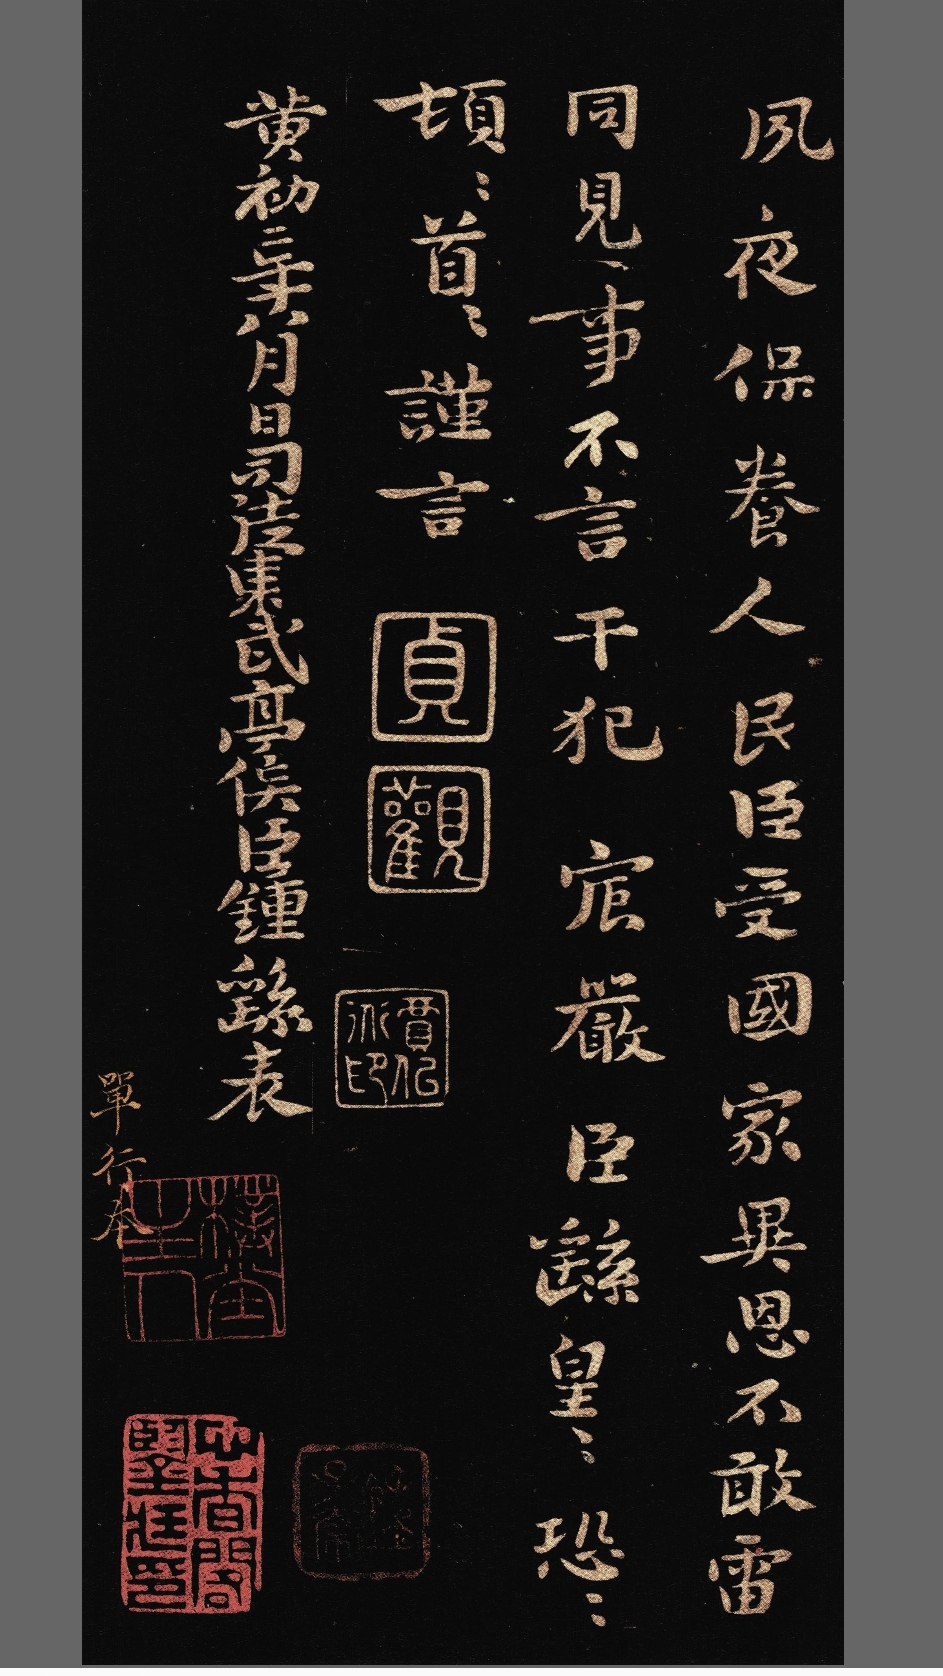 夙夜保養人民臣受國家異恩不敢雷
同見事不言干犯宸嚴臣繇皇〻恐〻
頓〻首〻謹言
貞觀
賈似道印
黃初二年八月日司徒東武亭侯臣鍾繇表
單行本